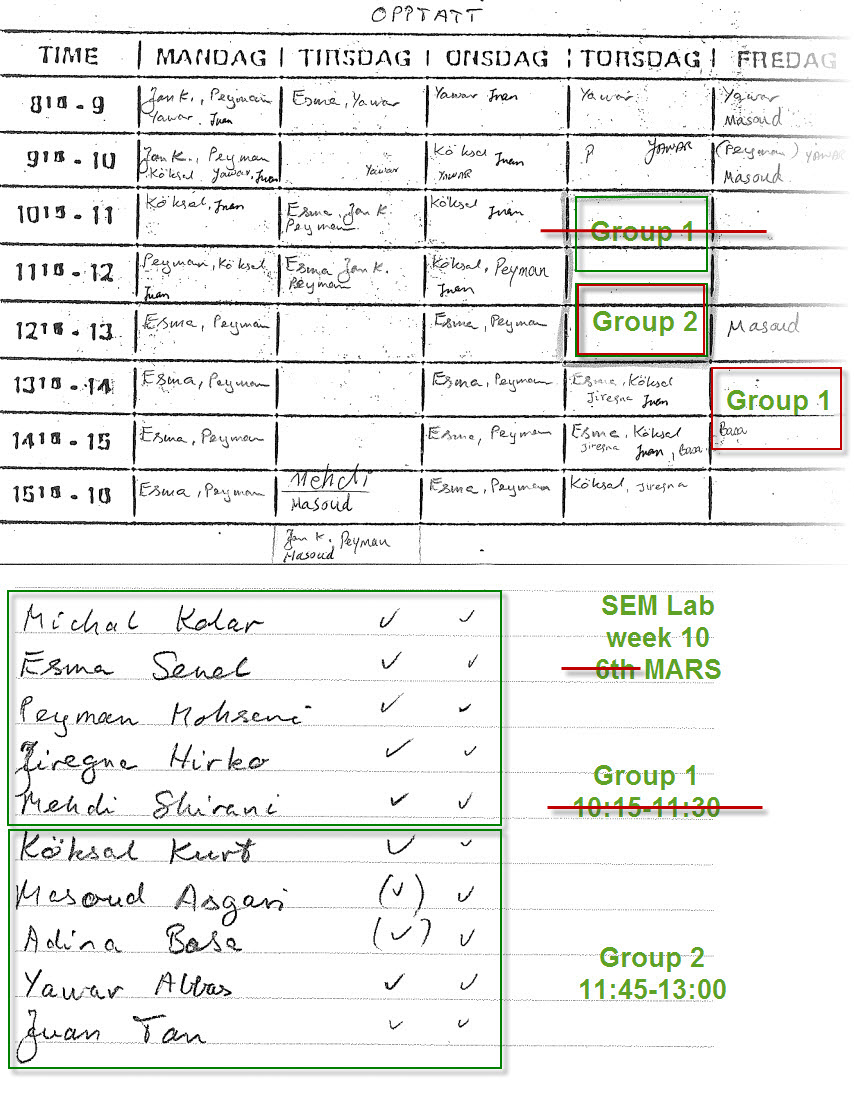 OPPTATT
TIME | MANDAG | TIRSDAG | ONSDAG | TORSDAG | FREDAG
8¹⁵ - 9
Jan K., Peyman
Yawar. Juan
Esma, Yawar
Yawar Juan
Yawar
Yawar
Masoud
9¹⁵ - 10
Jan K., Peyman
Köksal Yawar, Juan
Yawar
Köksal Juan
YAWAR
P YAWAR
(Peyman) YAWAR
Masoud
10¹⁵ - 11
Köksal, Juan
Esma, Jan K.
Peyman
Köksal Juan
Group 1
11¹⁵ - 12
Peyman, Köksal
Juan
Esma Jan K.
Peyman
Köksal, Peyman
Juan
12¹⁵ - 13
Esma, Peyman
Esma, Peyman
Group 2
Masoud
13¹⁵ - 14
Esma, Peyman
Esma, Peyman
Esma, Köksal
Jiregna Juan
Group 1
14¹⁵ - 15
Esma, Peyman
Esma, Peyman
Esma, Köksal
Jiregna Juan, Basa
Basa
15¹⁵ - 16
Esma, Peyman
Mehdi
Masoud
Esma, Peyman
Köksal, Jiregna
Jan K., Peyman
Masoud
Michal Kolar ✓ ✓
Esma Senel ✓ ✓
Peyman Mohseni ✓ ✓
Jiregna Hirko ✓ ✓
Mehdi Shirani ✓ ✓
Köksal Kurt ✓ ✓
Masoud Asgari (✓) ✓
Adina Basa (✓) ✓
Yawar Abbas ✓ ✓
Juan Tan ✓ ✓
SEM Lab
week 10
6th MARS
Group 1
10:15-11:30
Group 2
11:45-13:00